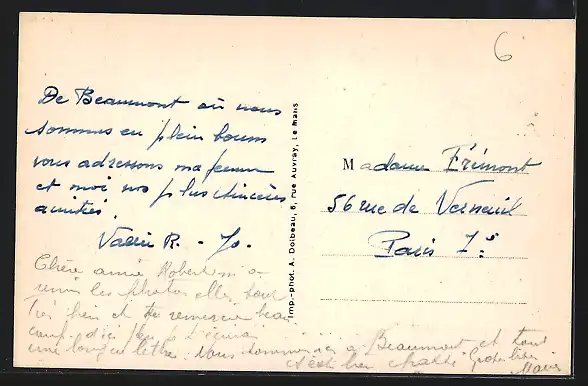 6
De Beaumont où nous
sommes en plein boum
vous adressons ma femme
et moi nos plus sincères
amitiés.
Imp.-phot. A. Dolbeau, 6, rue Auvray, Le Mans
Madame Frémont
56 rue de Verneuil
Paris 7e
Chère amie Robert m'a
remis les photos elles sont
très bien et te remercie beau
coup.
une longue lettre. Nous sommes à Beaumont et tout